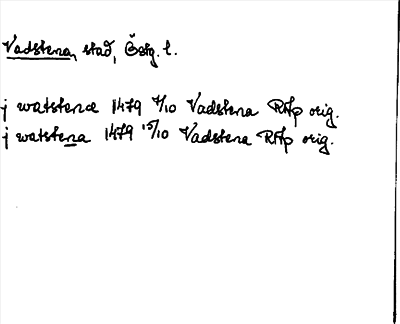 Vadstena, stad, Östg. l.
j watstena 1479 4/10 Vadstena RAp orig.
j watstena 1479 15/10 Vadstena RAp orig.